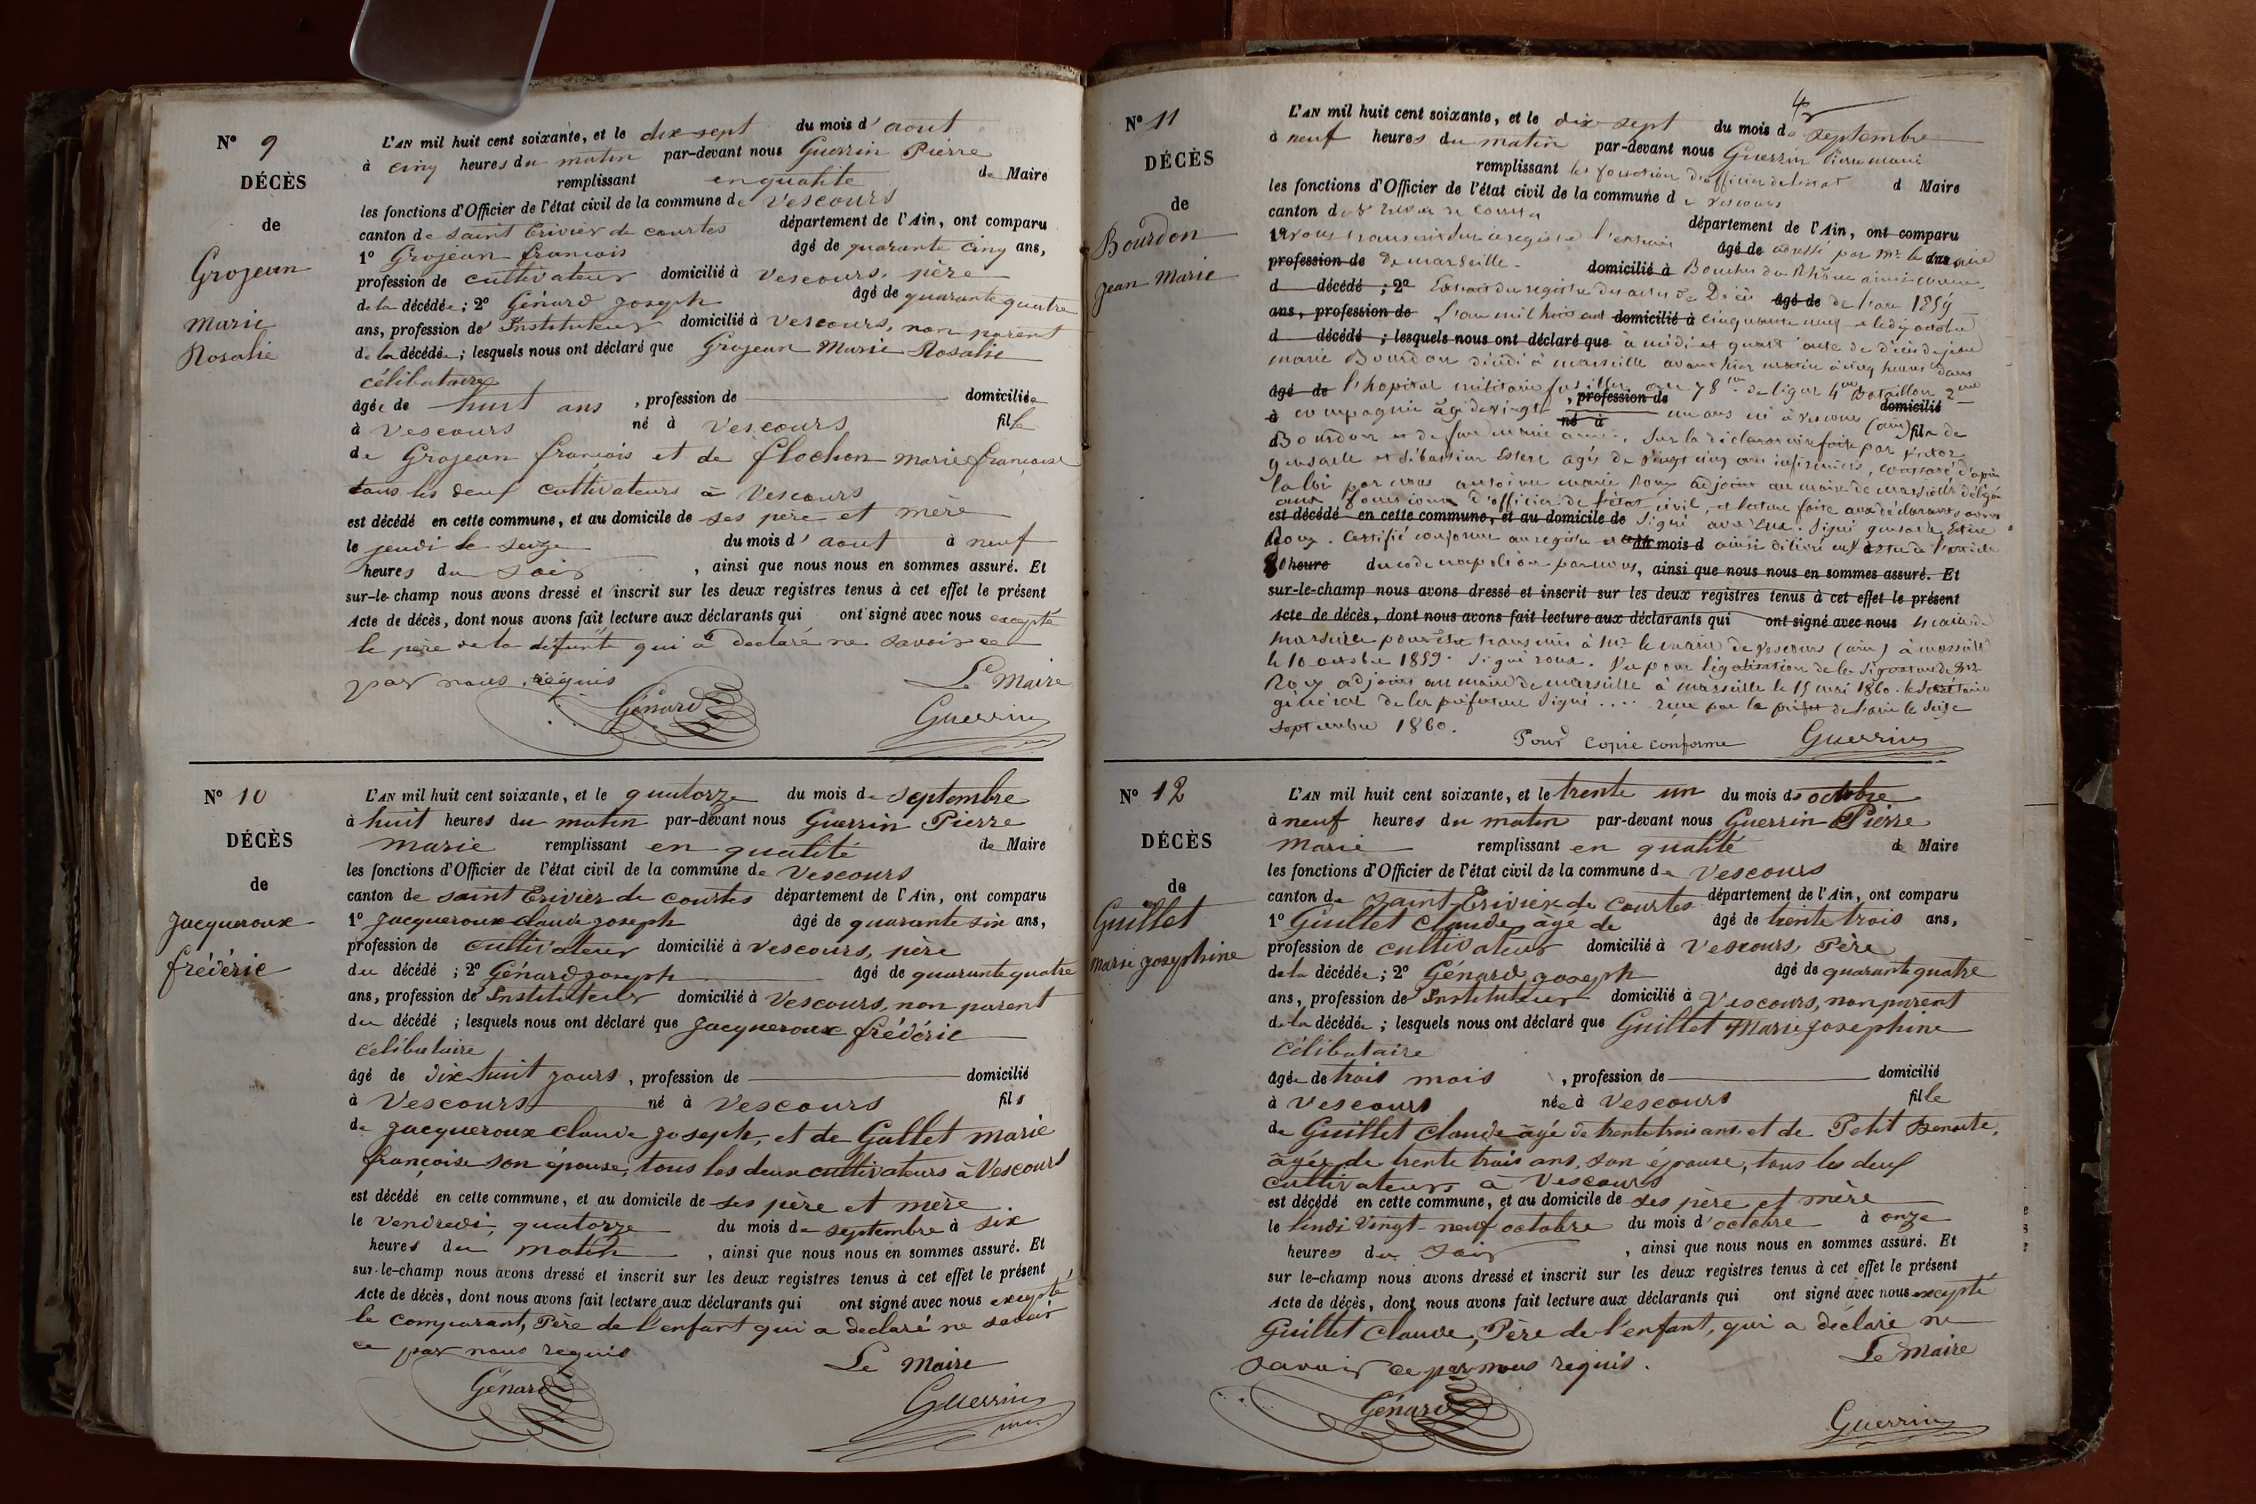 N° 9
DÉCÈS
de
Grojean
Marie
Rosalie
L'AN mil huit cent soixante, et le dix sept du mois d' aout
à cinq heures du matin par-devant nous Guerrin Pierre
remplissant en qualité de Maire
les fonctions d'Officier de l'état civil de la commune de Vescours
canton de saint Trivier de courtes département de l'Ain, ont comparu
1° Grojean françois âgé de quarante cinq ans,
profession de cultivateur domicilié à Vescours, père
de la décédée ; 2° Génard joseph âgé de quarante quatre
ans, profession de Instituteur domicilié à Vescours, non parent
de la décédée ; lesquels nous ont déclaré que Grojean Marie Rosalie
célibataire
âgée de huit ans , profession de domiciliée
à Vescours né à Vescours fille
de Grojean françois et de flochon marie francoise
tous les deux cultivateurs à Vescours
est décédé en cette commune, et au domicile de ses père et mère
le jeudi le seize du mois d' aout à neuf
heures du soir , ainsi que nous nous en sommes assuré. Et
sur-le-champ nous avons dressé et inscrit sur les deux registres tenus à cet effet le présent
Acte de décès, dont nous avons fait lecture aux déclarants qui ont signé avec nous excepté
le père de la défunte qui a declaré ne savoir ce
par nous requis Le Maire
Génard Guerrin
N° 10
DÉCÈS
de
Jacqueroux
frédéric
L'AN mil huit cent soixante, et le quatorze du mois de septembre
à huit heures du matin par-devant nous Guerrin Pierre
marie remplissant en qualité de Maire
les fonctions d'Officier de l'état civil de la commune de Vescours
canton de saint Trivier de courtes département de l'Ain, ont comparu
1° Jacqueroux claude joseph âgé de quarante six ans,
profession de cultivateur domicilié à Vescours, père
du décédé ; 2° Génard joseph âgé de quarante quatre
ans, profession de Instituteur domicilié à Vescours, non parent
du décédé ; lesquels nous ont déclaré que Jacqueroux frédéric
célibataire
âgé de dix huit jours , profession de domicilié
à Vescours né à Vescours fils
de Jacqueroux claude joseph, et de Gallet marie
françoise son épouse, tous les deux cultivateurs à Vescours
est décédé en cette commune, et au domicile de ses père et mère
le vendredi quatorze du mois de septembre à six
heures du matin , ainsi que nous nous en sommes assuré. Et
sur-le-champ nous avons dressé et inscrit sur les deux registres tenus à cet effet le présent
Acte de décès, dont nous avons fait lecture aux déclarants qui ont signé avec nous excepté
le comparant, Père de l'enfant qui a declaré ne savoir
ce par nous requis Le Maire
Génard Guerrin
N° 11
DÉCÈS
de
Bourdon
Jean Marie
L'AN mil huit cent soixante, et le dix sept du mois de septembre
à neuf heures du matin par-devant nous Guerrin Pierre marie
remplissant les fonctions d'officier de l'etat d Maire
les fonctions d'Officier de l'état civil de la commune de Vescours
canton de St Trivier de Courtes département de l'Ain, ont comparu
1° avons transcrit sur le registre l'extrait âgé de adressé par Mr le maire
profession de De marseille domicilié à Bouches du Rhône ainsi conçu
d décédé ; 2° Extrait du registre des actes de Décès âgé de de l'an 1859
ans, profession de L'an mil huit cent domicilié à cinquante neuf et le dix octobre
d décédé ; lesquels nous ont déclaré que à midi et quart acte de décès de jean
marie Bourdon décédé à marseille avant hier matin à cinq heures dans
âgé de l'hopital militaire fusilier au 78me de ligne 4me Bataillon 2me
à compagnie âgé de vingt , profession de un ans né à Vescours (ain) domicilié
né à fils de
Bourdon et de Sur la déclaration faite par Victor
et Sébastien Estere agés de vingt cinq ans infirmiers, constaté d'après
la loi par nous antoine marie Roux adjoint au maire de marseille délégué
aux fonctions d'officier de l'état civil, et lecture faite aux déclarants avons
est décédé en cette commune, et au domicile de signé avec Eux. Signé Estere
Roux. Certifié conforme au registre et du mois d ainsi délivré en vertu de l'article
80 heure du code napoléon par nous, ainsi que nous nous en sommes assuré. Et
sur-le-champ nous avons dressé et inscrit sur les deux registres tenus à cet effet le présent
Acte de décès, dont nous avons fait lecture aux déclarants qui ont signé avec nous maire de
Marseille pour être transmis à Mr le maire de Vescours (ain) à marseille
le 10 octobre 1859. Signé roux. Vu pour légalisation de la signature de Mr
Roux adjoint au maire de marseille à marseille le 15 mai 1860. le Secrétaire
général de la préfecture Signé .... reçu par le préfet de l'ain le seize
Septembre 1860.
Pour copie conforme Guerrin
N° 12
DÉCÈS
de
Guillet
Marie josephine
L'AN mil huit cent soixante, et le trente un du mois de octobre
à neuf heures du matin par-devant nous Guerrin Pierre
Marie remplissant en qualité de Maire
les fonctions d'Officier de l'état civil de la commune de Vescours
canton de saint Trivier de Courtes département de l'Ain, ont comparu
1° Guillet Claude âgé de âgé de trente trois ans,
profession de cultivateur domicilié à Vescours, Père
de la décédée ; 2° Génard joseph âgé de quarante quatre
ans, profession de Instituteur domicilié à Vescours, non parent
de la décédée ; lesquels nous ont déclaré que Guillet Marie josephine
célibataire
âgée de trois mois , profession de domicilié
à Vescours née à Vescours fille
de Guillet Claude âgé de trente trois ans et de Petit Benoite,
âgée de trente trois ans, son épouse, tous les deux
cultivateurs à Vescours
est décédé en cette commune, et au domicile de ses père et mère
le lundi vingt-neuf octobre du mois d'octobre à onze
heures du soir , ainsi que nous nous en sommes assuré. Et
sur le-champ nous avons dressé et inscrit sur les deux registres tenus à cet effet le présent
Acte de décès, dont nous avons fait lecture aux déclarants qui ont signé avec nous excepté
Guillet Claude, Père de l'enfant, qui a déclaré ne
savoir ce par nous requis. Le Maire
Génard Guerrin